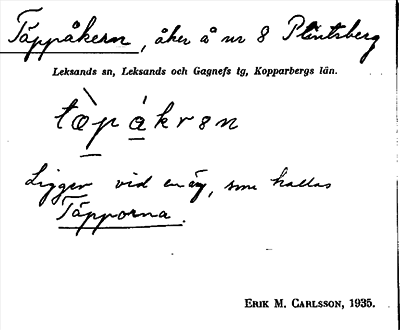 Täppåkern, åker å nr 8 Plintsberg
Leksands sn, Leksands och Gagnefs tg, Kopparbergs län.
tæ̀pákrən
Ligger vid en äng, som kallas
Täpporna.
ERIK M. CARLSSON, 1935.